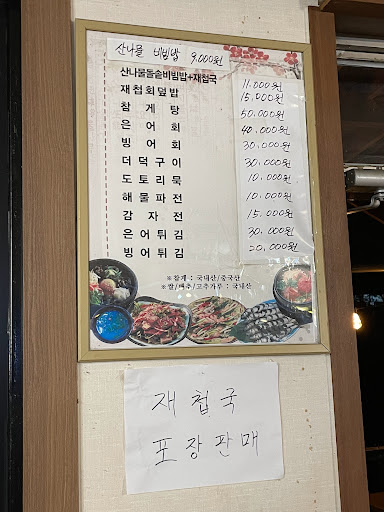 산나물 비빔밥 9,000원
산나물돌솥비빔밥+재첩국 11,000원
재첩회덮밥 15,000원
참게탕 50,000원
은어회 40,000원
빙어회 30,000원
더덕구이 30,000원
도토리묵 10,000원
해물파전 10,000원
감자전 15,000원
은어튀김 30,000원
빙어튀김 20,000원
※참게 : 국내산/중국산
※쌀/배추/고추가루 : 국내산
재첩국
포장판매